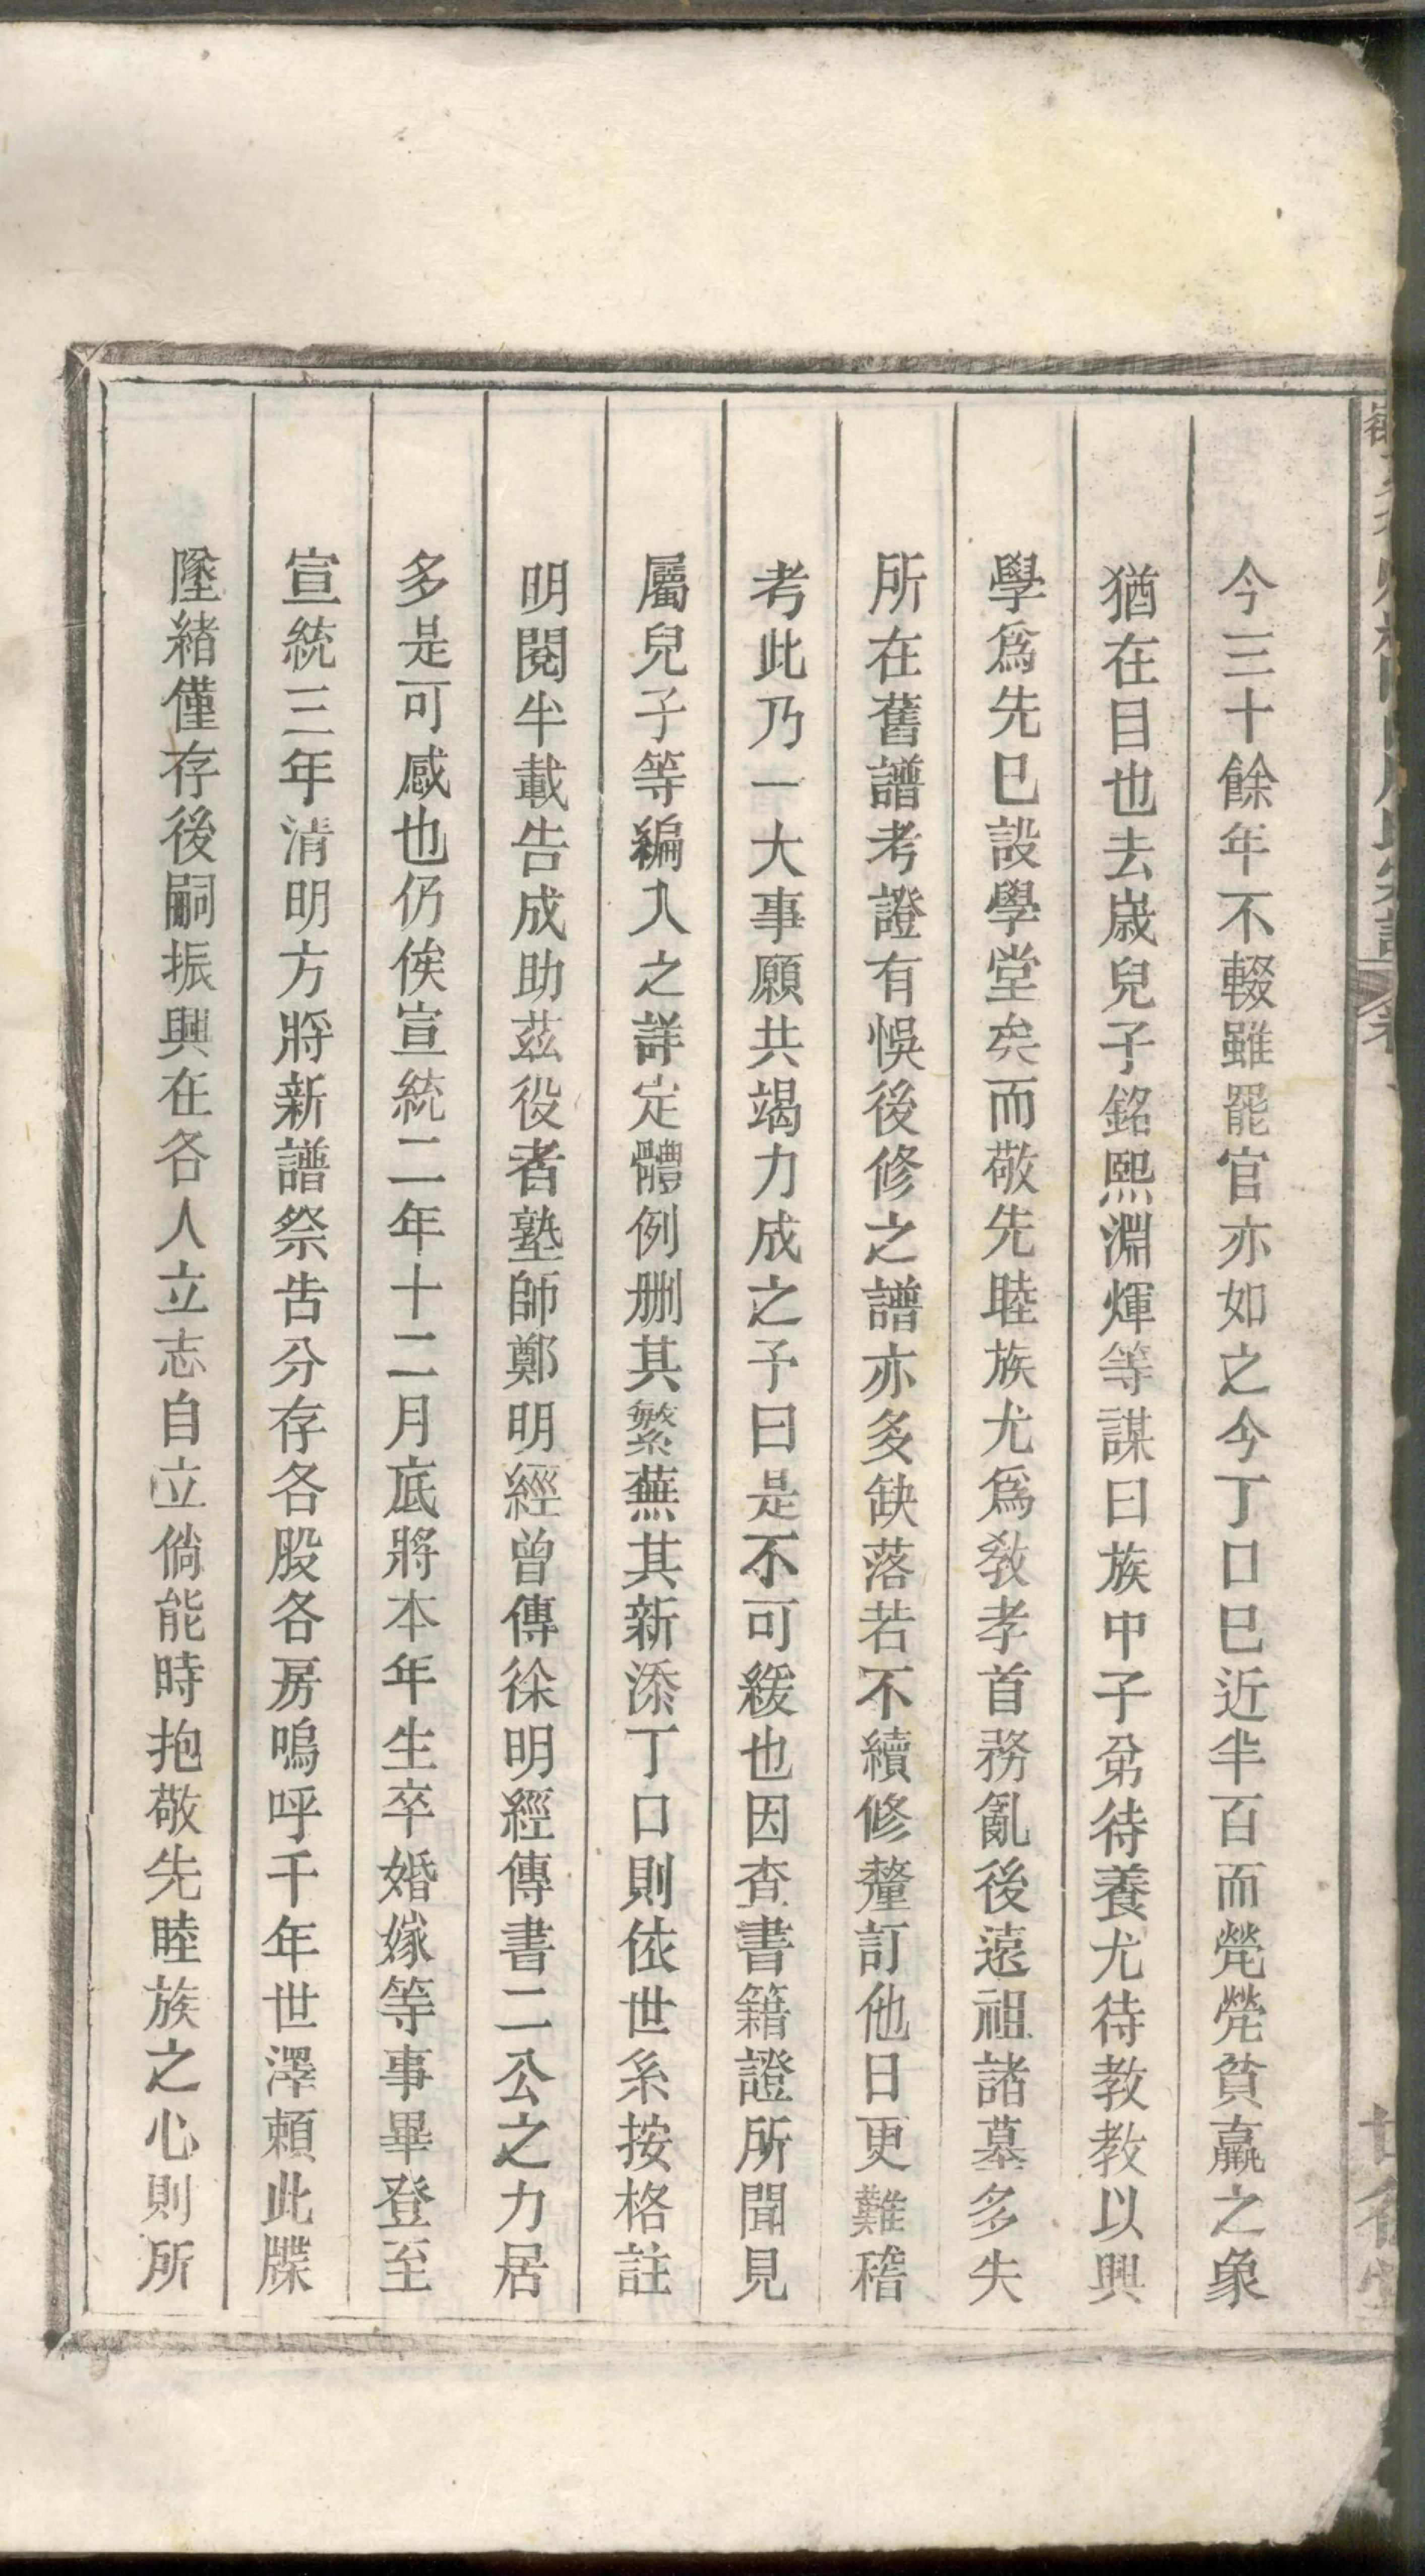 今三十餘年不輟雖罷官亦如之今丁口巳近半百而煢煢貧羸之象
猶在目也去歲兒子銘熙淵煇等謀曰族中子弟待養尤待教教以興
學爲先巳設學堂矣而敬先睦族尤爲教孝首務亂後遠祖諸墓多失
所在舊譜考證有悞後修之譜亦多缺落若不續修釐訂他日更難稽
考此乃一大事願共竭力成之予曰是不可緩也因查書籍證所聞見
屬兒子等編入之詳定體例删其繁蕪其新添丁口則依世系按格註
明閱半載告成助茲役者塾師鄭明經曾傳徐明經傳書二公之力居
多是可感也仍俟宣統二年十二月底將本年生卒婚嫁等事畢登至
宣統三年清明方將新譜祭告分存各股各房嗚呼千年世澤賴此牒
墜緒僅存後嗣振興在各人立志自立倘能時抱敬先睦族之心則所